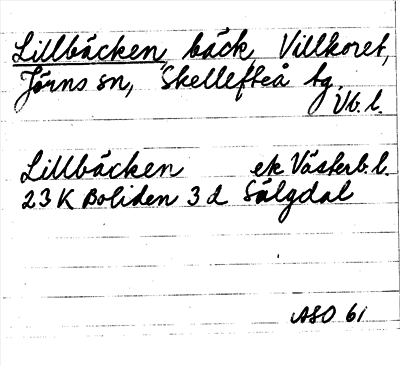 Lillbäcken, bäck, Villkoret,
Jörns sn, Skellefteå tg,
Vb. l.
Lillbäcken ek Västerb. l.
23 K Boliden 3 d Sälgdal
ASO 61